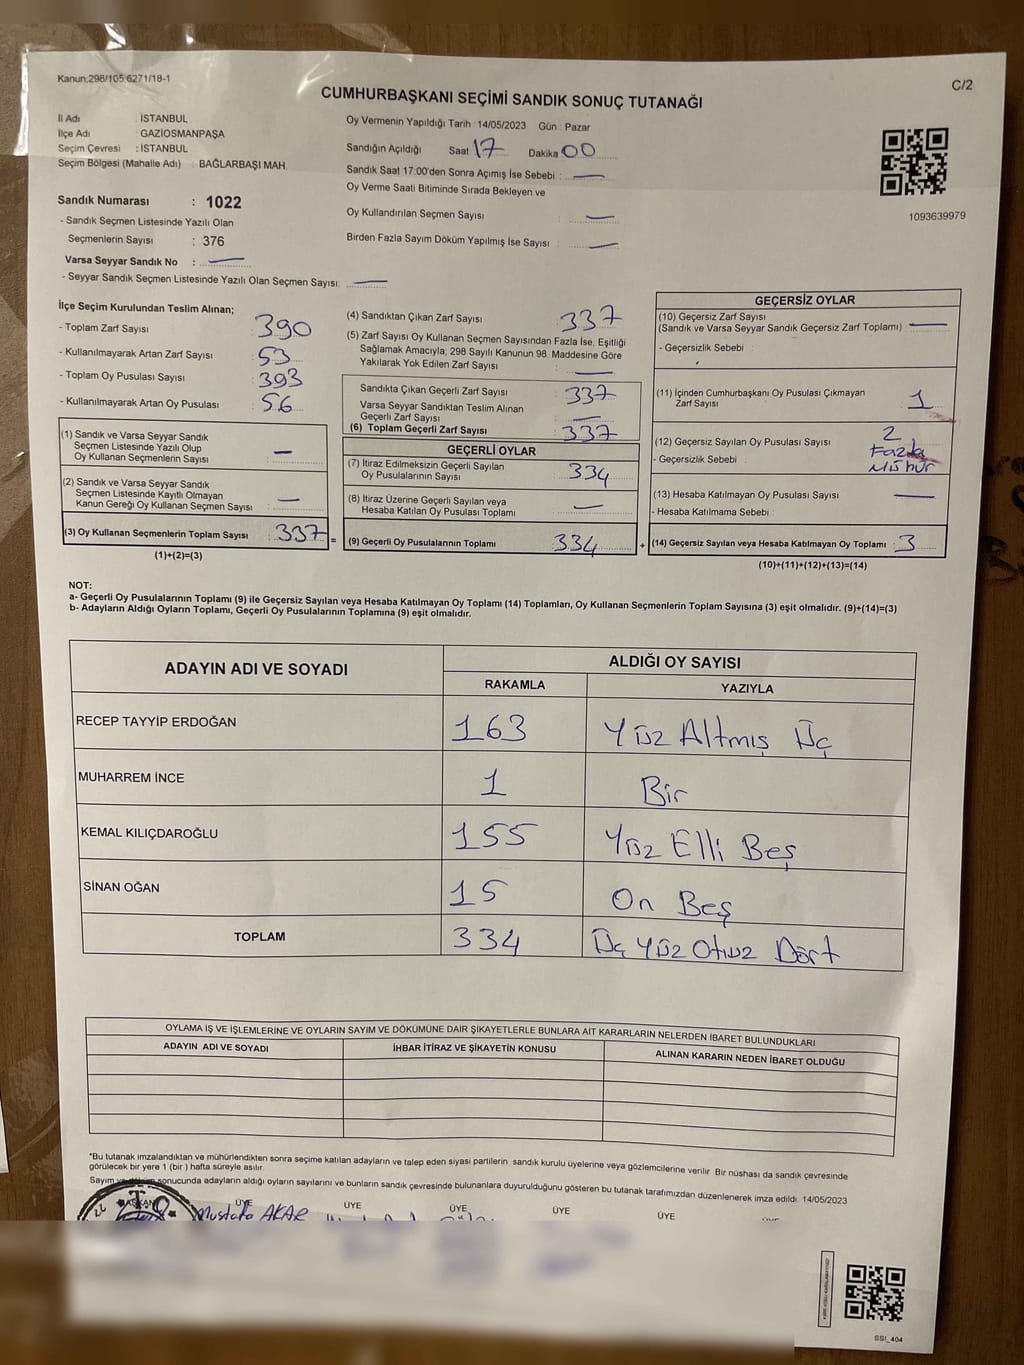 Kanun:298/105 6271/18-1
C/2
CUMHURBAŞKANI SEÇİMİ SANDIK SONUÇ TUTANAĞI
İl Adı : İSTANBUL
İlçe Adı : GAZİOSMANPAŞA
Seçim Çevresi : İSTANBUL
Seçim Bölgesi (Mahalle Adı) : BAĞLARBAŞI MAH.
Sandık Numarası : 1022
- Sandık Seçmen Listesinde Yazılı Olan
Seçmenlerin Sayısı : 376
Varsa Seyyar Sandık No : —
- Seyyar Sandık Seçmen Listesinde Yazılı Olan Seçmen Sayısı: —
Oy Vermenin Yapıldığı Tarih : 14/05/2023 Gün : Pazar
Sandığın Açıldığı Saat 17 Dakika 00
Sandık Saat 17:00'den Sonra Açımış İse Sebebi : —
Oy Verme Saati Bitiminde Sırada Bekleyen ve
Oy Kullandırılan Seçmen Sayısı : —
Birden Fazla Sayım Döküm Yapılmış İse Sayısı : —
1093639979
İlçe Seçim Kurulundan Teslim Alınan;
- Toplam Zarf Sayısı : 390
- Kullanılmayarak Artan Zarf Sayısı : 53
- Toplam Oy Pusulası Sayısı : 393
- Kullanılmayarak Artan Oy Pusulası : 56
(1) Sandık ve Varsa Seyyar Sandık
Seçmen Listesinde Yazılı Olup
Oy Kullanan Seçmenlerin Sayısı : —
(2) Sandık ve Varsa Seyyar Sandık
Seçmen Listesinde Kayıtlı Olmayan
Kanun Gereği Oy Kullanan Seçmen Sayısı : —
(3) Oy Kullanan Seçmenlerin Toplam Sayısı : 337 =
(1)+(2)=(3)
(4) Sandıktan Çıkan Zarf Sayısı : 337
(5) Zarf Sayısı Oy Kullanan Seçmen Sayısından Fazla İse, Eşitliği
Sağlamak Amacıyla; 298 Sayılı Kanunun 98. Maddesine Göre
Yakılarak Yok Edilen Zarf Sayısı : —
Sandıkta Çıkan Geçerli Zarf Sayısı : 337
Varsa Seyyar Sandıktan Teslim Alınan
Geçerli Zarf Sayısı : —
(6) Toplam Geçerli Zarf Sayısı : 337
GEÇERLİ OYLAR
(7) İtiraz Edilmeksizin Geçerli Sayılan
Oy Pusulalarının Sayısı : 334
(8) İtiraz Üzerine Geçerli Sayılan veya
Hesaba Katılan Oy Pusulası Toplamı : —
(9) Geçerli Oy Pusulalarının Toplamı : 334 +
GEÇERSİZ OYLAR
(10) Geçersiz Zarf Sayısı
(Sandık ve Varsa Seyyar Sandık Geçersiz Zarf Toplamı) : —
- Geçersizlik Sebebi :
(11) İçinden Cumhurbaşkanı Oy Pusulası Çıkmayan
Zarf Sayısı : 1
(12) Geçersiz Sayılan Oy Pusulası Sayısı : 2
- Geçersizlik Sebebi : Fazla
Mühür
(13) Hesaba Katılmayan Oy Pusulası Sayısı : —
- Hesaba Katılmama Sebebi :
(14) Geçersiz Sayılan veya Hesaba Katılmayan Oy Toplamı : 3
(10)+(11)+(12)+(13)=(14)
NOT:
a- Geçerli Oy Pusulalarının Toplamı (9) ile Geçersiz Sayılan veya Hesaba Katılmayan Oy Toplamı (14) Toplamları, Oy Kullanan Seçmenlerin Toplam Sayısına (3) eşit olmalıdır. (9)+(14)=(3)
b- Adayların Aldığı Oyların Toplamı, Geçerli Oy Pusulalarının Toplamına (9) eşit olmalıdır.
ADAYIN ADI VE SOYADI
ALDIĞI OY SAYISI
RAKAMLA YAZIYLA
RECEP TAYYİP ERDOĞAN 163 Yüz Altmış Üç
MUHARREM İNCE 1 Bir
KEMAL KILIÇDAROĞLU 155 Yüz Elli Beş
SİNAN OĞAN 15 On Beş
TOPLAM 334 Üç Yüz Otuz Dört
OYLAMA İŞ VE İŞLEMLERİNE VE OYLARIN SAYIM VE DÖKÜMÜNE DAİR ŞİKAYETLERLE BUNLARA AİT KARARLARIN NELERDEN İBARET BULUNDUKLARI
ADAYIN ADI VE SOYADI İHBAR İTİRAZ VE ŞİKAYETİN KONUSU ALINAN KARARIN NEDEN İBARET OLDUĞU
*Bu tutanak imzalandıktan ve mühürlendikten sonra seçime katılan adayların ve talep eden siyasi partilerin sandık kurulu üyelerine veya gözlemcilerine verilir. Bir nüshası da sandık çevresinde
görülecek bir yere 1 (bir ) hafta süreyle asılır.
Sayım ve döküm sonucunda adayların aldığı oyların sayılarını ve bunların sandık çevresinde bulunanlara duyurulduğunu gösteren bu tutanak tarafımızdan düzenlenerek imza edildi. 14/05/2023
BAŞKAN ÜYE ÜYE ÜYE ÜYE ÜYE
Mustafa AKAR
SSI_404